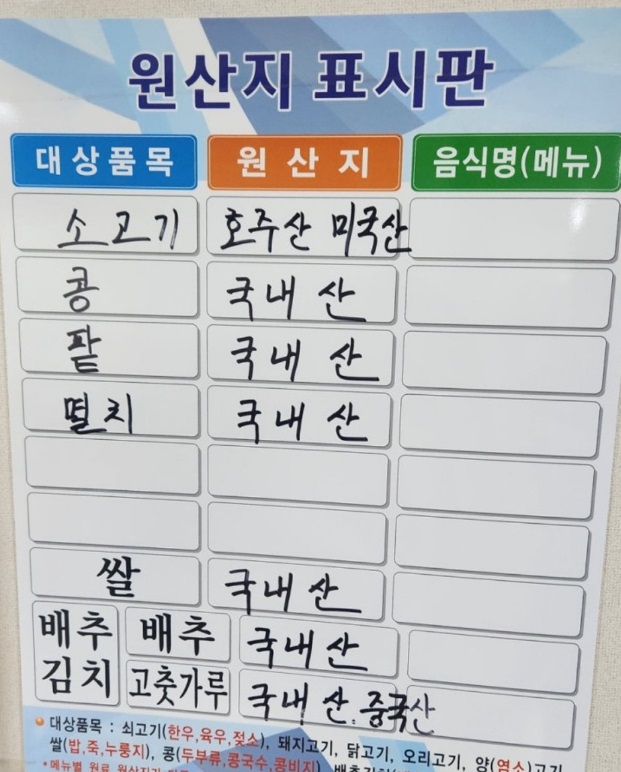 원산지 표시판
대상품목 원산지 음식명(메뉴)
소고기 호주산 미국산
콩 국내산
팥 국내산
멸치 국내산
쌀 국내산
배추김치 배추 국내산
고춧가루 국내산. 중국산
대상품목 : 쇠고기(한우,육우,젖소), 돼지고기, 닭고기, 오리고기, 양(염소)고기
쌀(밥,죽,누룽지), 콩(두부류,콩국수,콩비지)